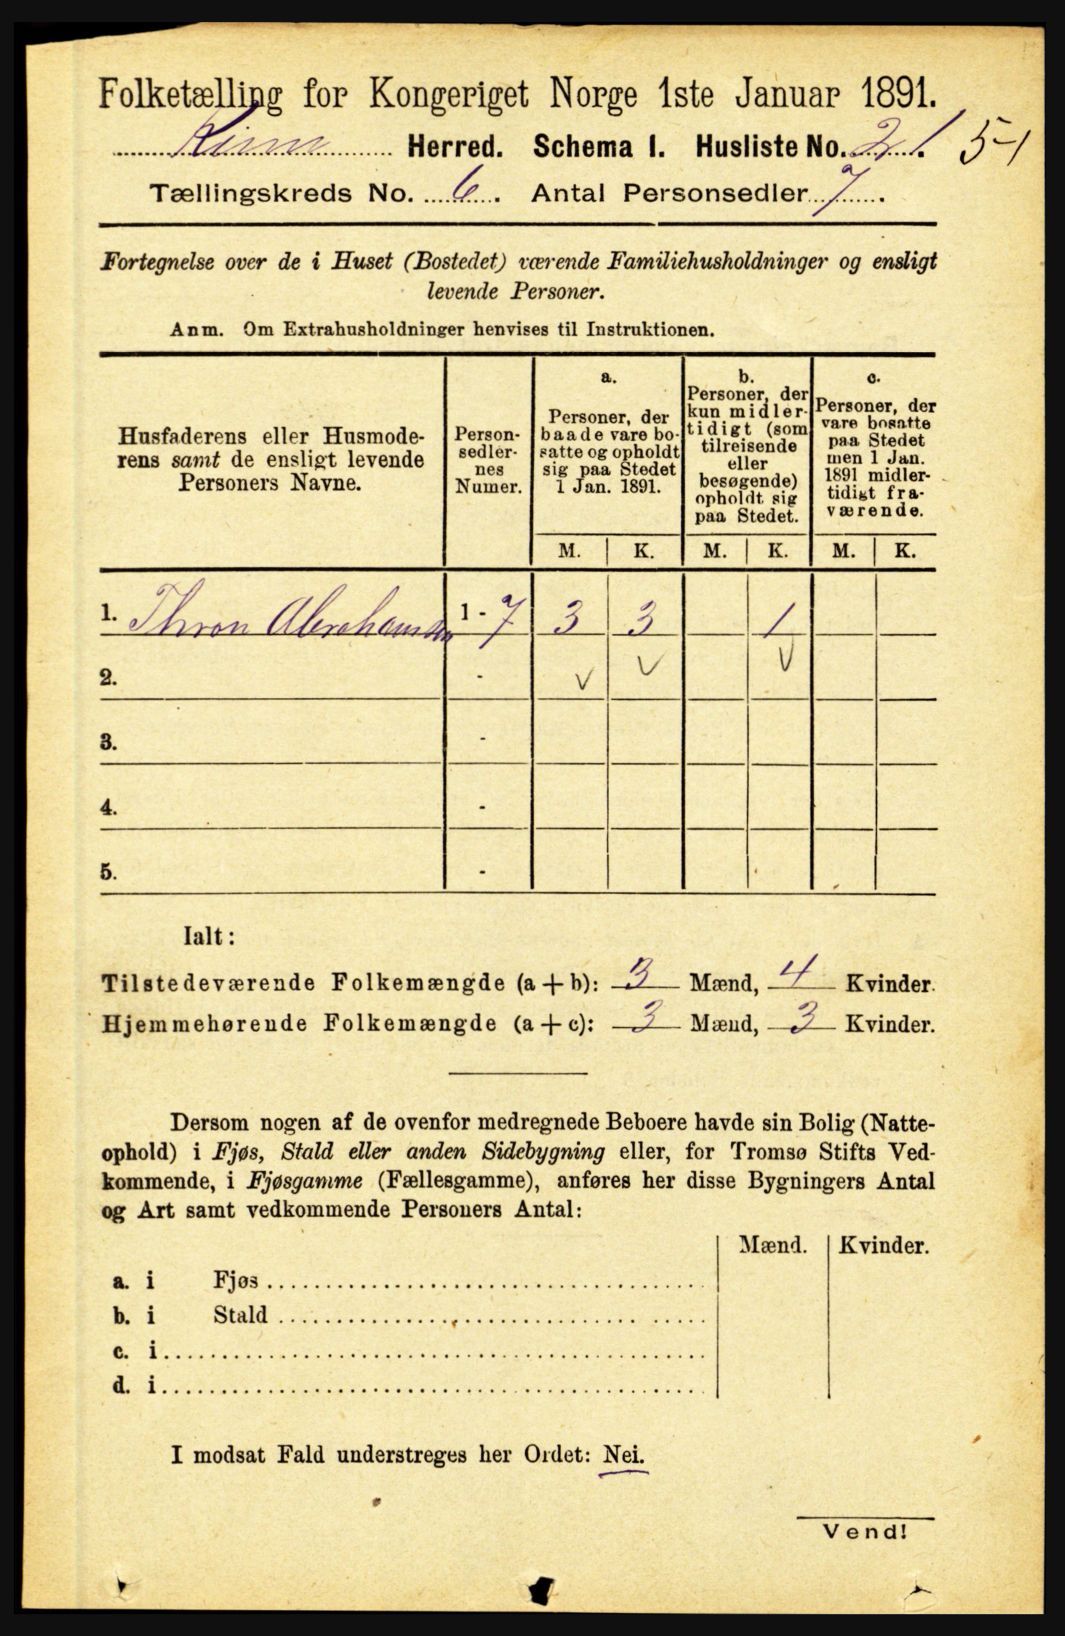 Folketælling for Kongeriget Norge 1ste Januar 1891.
Kinn Herred. Schema I. Husliste No. 21. 51
Tællingskreds No. 6. Antal Personsedler 7.
Fortegnelse over de i Huset (Bostedet) værende Familiehusholdninger og ensligt
levende Personer.
Anm. Om Extrahusholdninger henvises til Instruktionen.
Husfaderens eller Husmode-
rens samt de ensligt levende
Personers Navne.
Person-
sedler-
nes
Numer.
a.
Personer, der
baade vare bo-
satte og opholdt
sig paa Stedet
1 Jan. 1891.
b.
Personer, der
kun midler-
tidigt (som
tilreisende
eller
besøgende)
opholdt sig
paa Stedet.
c.
Personer, der
vare bosatte
paa Stedet
men 1 Jan.
1891 midler-
tidigt fra-
værende.
M. K. M. K. M. K.
1. Thron Abrahamsen 1 - 7 3 3 1
2. - v v v
3. -
4. -
5. -
Ialt:
Tilstedeværende Folkemængde (a + b): 3 Mænd, 4 Kvinder.
Hjemmehørende Folkemængde (a + c): 3 Mænd, 3 Kvinder.
Dersom nogen af de ovenfor medregnede Beboere havde sin Bolig (Natte-
ophold) i Fjøs, Stald eller anden Sidebygning eller, for Tromsø Stifts Ved-
kommende, i Fjøsgamme (Fællesgamme), anføres her disse Bygningers Antal
og Art samt vedkommende Personers Antal:
Mænd. Kvinder.
a. i Fjøs
b. i Stald
c. i
d. i
I modsat Fald understreges her Ordet: Nei.
Vend!